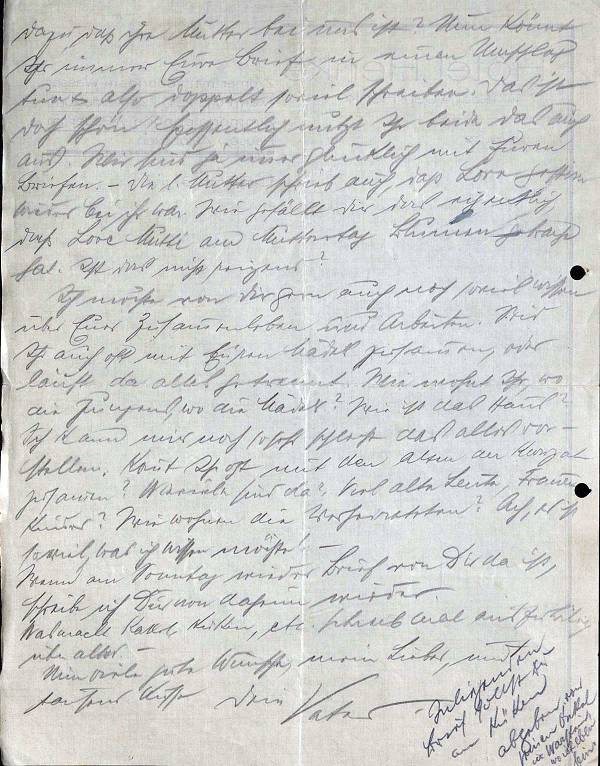 dazu daß ihre Mutter bei uns ist? Nun könnt
Ihr immer Eure Briefe in einen Umschlag
tun & also doppelt soviel schreiben. Das ist
doch schön. Hoffentlich nützt Ihr beide das auch
aus. Wir sind ja glücklich mit Euren
Briefen. – Die l. Mutter schrieb auch daß Lore gestern
wieder bei ihr war. Wie gefällt Dir das eigentlich
daß Lore Mutti am Muttertag Blumen gebracht
hat. Ist das nicht reizend?
Ich möchte von Dir gern auch noch soviel wissen
über Euer Zusammenleben und Arbeiten. Seid
Ihr auch oft mit Euren Mädels zusammen, oder
läuft da alles getrennt. Wie wohnt Ihr, wo
die Jungens, wo die Mädel? Wie ist das Haus?
Ich kann mir noch so schlecht das alles vor-
stellen. Kommt Ihr oft mit den Alten der
zusammen? Wieviele sind da? Viel alte Leute, Frauen
Kinder? Wie wohnen die Verheirateten? Ach, es ist
soviel, was ich wissen möchte! –
Wenn am Sonntag wieder Brief von Dir da ist,
schreibe ich Dir von daheim wieder.
Was macht etc. Schreib mal ausführlich
über alles. –
Nun viele gute Wünsche, mein Lieber, und
tausend Küsse Dein Vater
Brief sollst Du
an
abgeben von